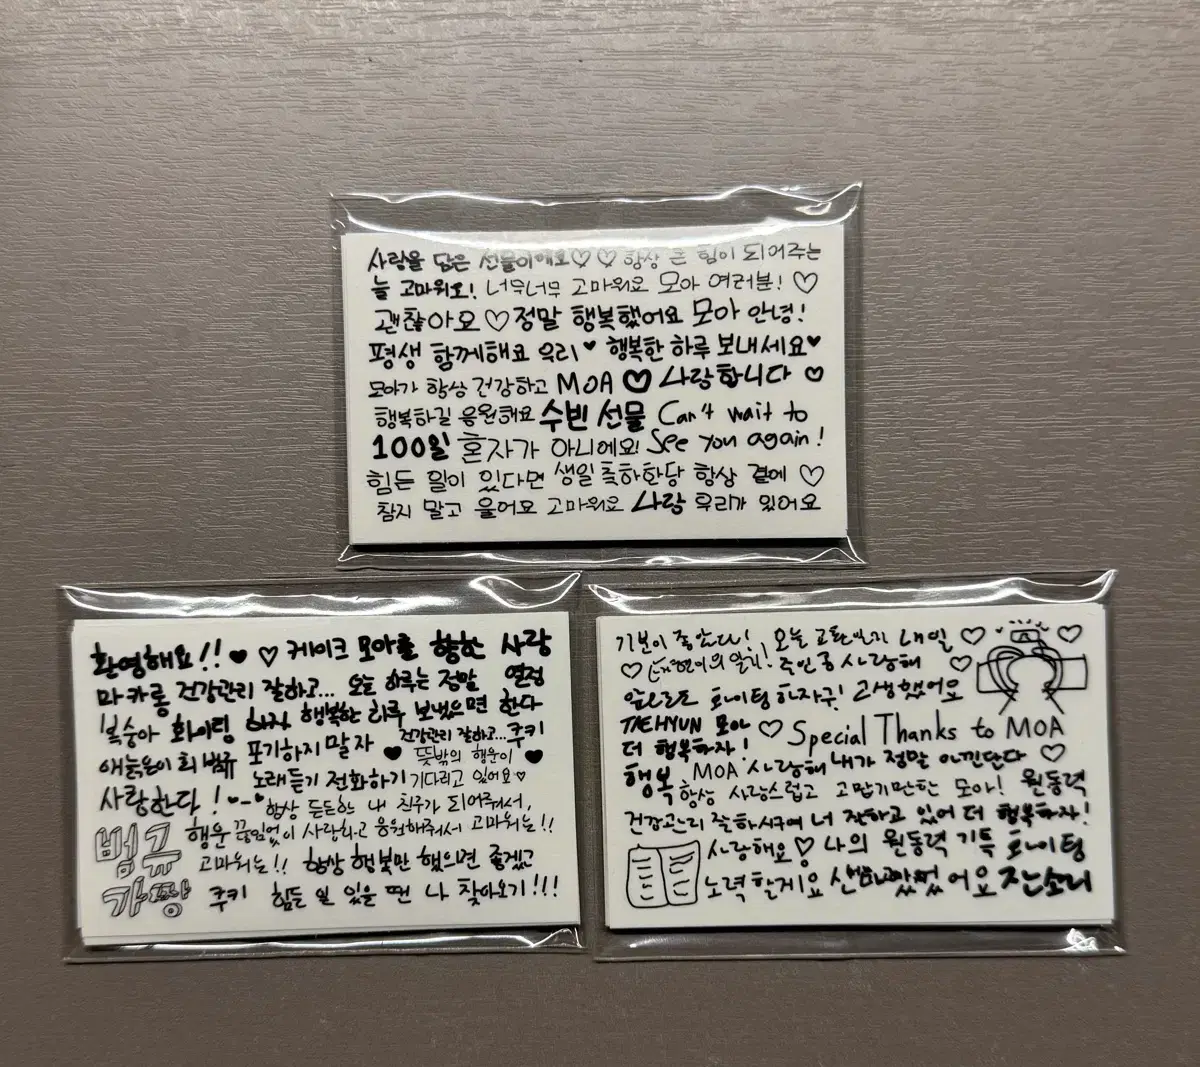 사랑을 담은 선물이에요♡♡ 항상 큰 힘이 되어주는
늘 고마워요! 너무너무 고마워요 모아 여러분! ♡
괜찮아요 ♡ 정말 행복했어요 모아 안녕!
평생 함께해요 우리♥ 행복한 하루 보내세요♥
모아가 항상 건강하고 MOA ♡ 사랑합니다 ♡
행복하길 응원해요 수빈 선물 Can't wait to
100일 혼자가 아니에요! See you again!
힘든 일이 있다면 생일 축하화당 항상 곁에 ♡
참지 말고 울어요 고마워요 사랑 우리가 있어요
환영해요!! ♥ ♡ 케이크 모아를 향한 사랑
마카롱 건강관리 잘하고... 오늘 하루는 정말 열정
복숭아 화이팅 하자 행복한 하루 보냈으면 한다
애늙은이 회 범규 포기하지 말자 건강관리 잘하고... 쿠키
♥ 뜻밖의 행운이 ♥
노래듣기 전화하기 기다리고 있어요♡
사랑한다! 항상 든든한 내 친구가 되어줘서,
범규 행운 끊임없이 사랑하고 응원해줘서 고마워는!!
고마워는!! 항상 행복만 했으면 좋겠고
가짱 쿠키 힘든 일 있을 땐 나 찾아오기!!!
기분이 좋았다! 오늘 교환일기 내일 ♡ ♡
♡ 태현이의 일기! 주인공 사랑해 ♡
앞으로도 화이팅 하자구! 고생했어요
TAEHYUN 모아 ♡ Special Thanks to MOA
더 행복하자!
행복 MOA 사랑해 내가 정말 아낀단다 ♡
항상 사랑스럽고 고맙기만한 모아! 원동력
건강관리 잘하시구여 너 잘하고 있어 더 행복하자!
사랑해요♡ 나의 원동력 기특 화이팅
노력할게요 어요 잔소리